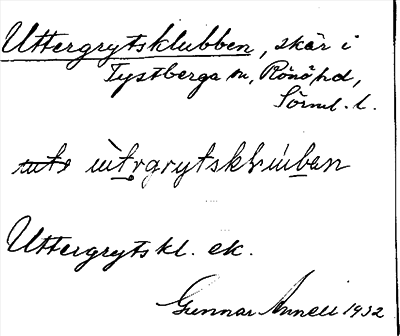 Uttergrytsklubben, skär i
Tystberga sn, Rönö hd,
Sörml. l.
ùtrgrytsklúban
Uttergrytskl. ek.
Gunnar Anneli 1932